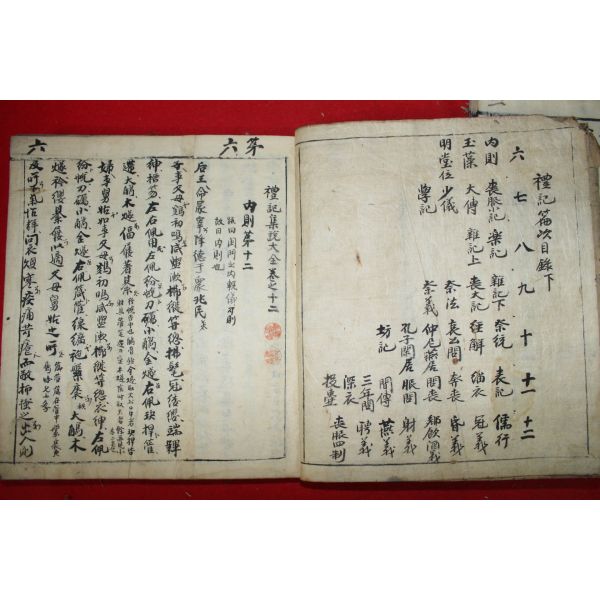 禮記篇次目錄下
六 七 八 九 十 十一 十二
內則 喪服小記 楽記 雜記下 祭統 表記 儒行
玉藻 大傳 雜記上 喪大記 經解 緇衣 冠義
明堂位 少儀 祭法 哀公問 奔喪 昏義
學記 祭義 仲尼燕居 問喪 鄕飮酒義
孔子閒居 服問 射義
坊記 間傳 燕義
三年問 聘義
深衣 喪服四制
投壺
第六
禮記集說大全卷之十二
內則第十二
疏曰閨門之內軌儀可則
故曰內則也
后王命冢宰降德于衆兆民
子事父母鷄初鳴咸盥漱櫛縰笄總拂髦冠緌纓端韠
紳搢笏左右佩用左佩紛帨刀礪小觿金燧右佩玦捍管
遰大觿木燧偪屨著綦
婦事舅姑如事父母鷄初鳴咸盥漱櫛縰笄總衣紳左佩
紛帨刀礪小觿金燧右佩箴管線纊施縏袠大觿木
燧衿纓綦屨以適父母舅姑之所
及所下氣怡聲問衣燠寒疾痛苛癢而敬抑搔之出入則
六